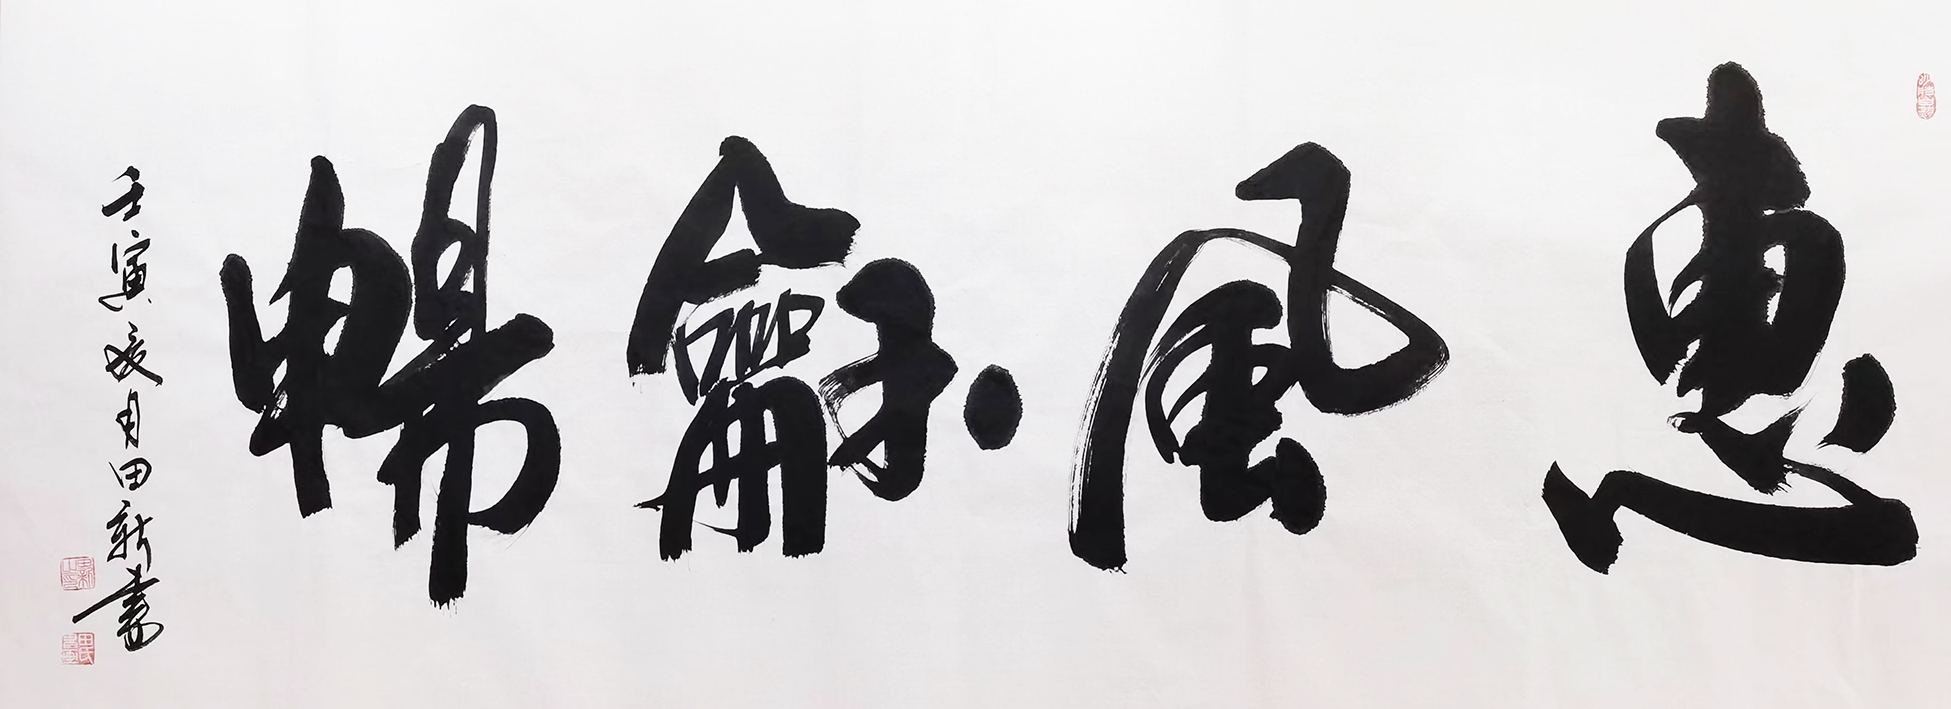 惠風龢暢
壬寅年月田新書